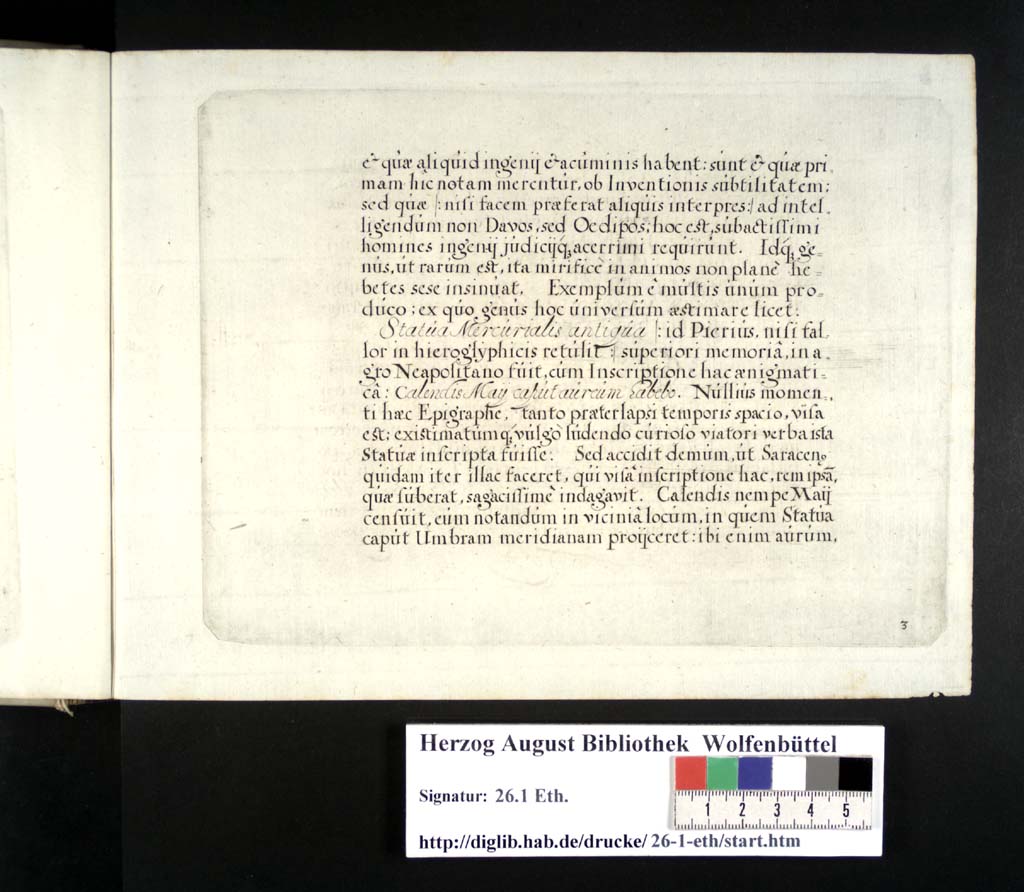 & quæ aliquid ingenij & acúminis habent: súnt & qúæ pri
mam hic notam merentúr, ob Inventionis súbtilitatem:
sed quæ /: nisi facem præferat aliqúis interpres :/ ad intel-
ligendúm non Davos, sed Oedipos, hoc est, súbactissimi
homines ingenij júdicijq́;, acerrimi requirúnt. Idq́; ge-
nús, út rarúm est, ita mirificè in animos non planè he-
betes sese insinúat. Exemplúm è múltis únúm pro-
dúco; ex qúo genús hoc úniversúm æstimare licet:
Statúa Mercúrialis antiqúa /: id Pierius, nisi fal-
lor in hieroglyphicis retúlit :/ súperiori memoriâ, in a-
gro Neapolitano fúit, cúm Inscriptione hac ænigmati-
câ: Calendis Maij capút aúreúm habebo. Núllius momen-
ti hæc Epigraphe, tanto præterlapsi temporis spacio, vîsa
est: existimatúmq́; vúlgò lúdendo cúrioso viatori verba ista
Statúæ inscripta fúisse. Sed accidit demúm, út Saracenꝰ
qúidam iter illac faceret, qúi visâ inscriptione hac, rem ipsã,
quæ súberat, sagacissimè indagavit. Calendis nempe Maij
censúit, eúm notandúm in viciniâ locúm, in qúem Statúa
capút Umbram meridianam proijceret: ibi enim aúrúm,
3
Herzog August Bibliothek Wolfenbüttel
Signatur: 26.1 Eth.
1 2 3 4 5
http://diglib.hab.de/drucke/ 26-1-eth/start.htm